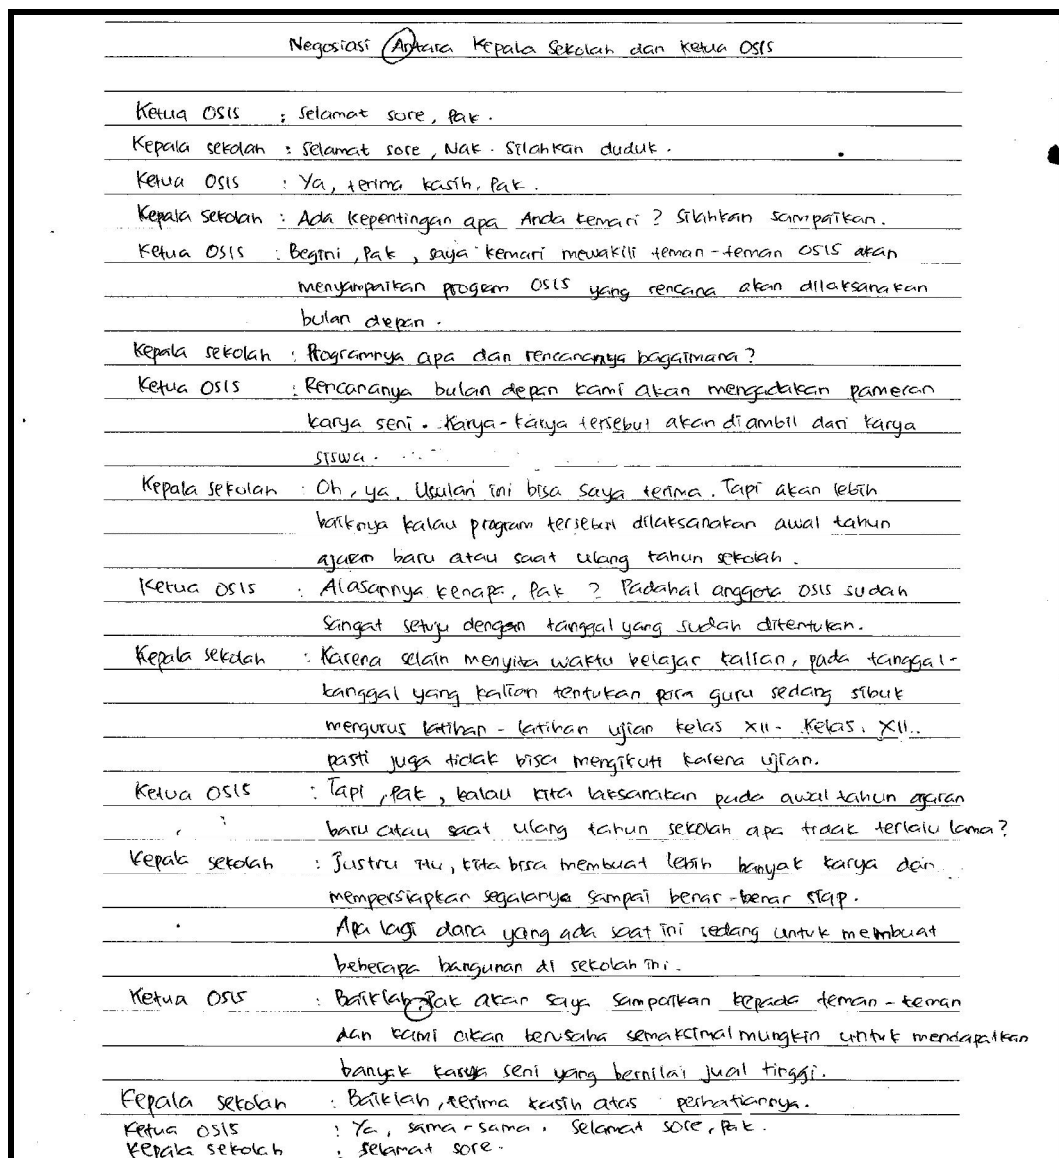 Negosiasi Antara Kepala Sekolah dan Ketua OSIS
Ketua OSIS : Selamat sore, Pak.
Kepala sekolah : Selamat sore, Nak. Silahkan duduk.
Ketua OSIS : Ya, terima kasih, Pak.
Kepala sekolah : Ada kepentingan apa Anda kemari? Silahkan sampaikan.
Ketua OSIS : Begini, Pak, saya kemari mewakili teman-teman OSIS akan
menyampaikan progam OSIS yang rencana akan dilaksanakan
bulan depan.
Kepala sekolah : Programnya apa dan rencananya bagaimana?
Ketua OSIS : Rencananya bulan depan kami akan mengadakan pameran
karya seni. Karya-karya tersebut akan diambil dari karya
siswa.
Kepala sekolah : Oh, ya. Usulan ini bisa saya terima. Tapi akan lebih
baiknya kalau program tersebut dilaksanakan awal tahun
ajaran baru atau saat ulang tahun sekolah.
Ketua OSIS : Alasannya kenapa, Pak? Padahal anggota OSIS sudah
sangat setuju dengan tanggal yang sudah ditentukan.
Kepala sekolah : Karena selain menyita waktu belajar kalian, pada tanggal-
tanggal yang kalian tentukan para guru sedang sibuk
mengurus latihan-latihan ujian kelas XII. Kelas XII
pasti juga tidak bisa mengikuti karena ujian.
Ketua OSIS : Tapi, Pak, kalau kita laksanakan pada awal tahun ajaran
baru atau saat ulang tahun sekolah apa tidak terlalu lama?
Kepala sekolah : Justru itu, kita bisa membuat lebih banyak karya dan
mempersiapkan segalanya sampai benar-benar siap.
Apa lagi dana yang ada saat ini sedang untuk membuat
beberapa bangunan di sekolah ini.
Ketua OSIS : Baiklah, Pak akan saya sampaikan kepada teman-teman
dan kami akan berusaha semaksimal mungkin untuk mendapatkan
banyak karya seni yang bernilai jual tinggi.
Kepala sekolah : Baiklah, terima kasih atas perhatiannya.
Ketua OSIS : Ya, sama-sama. Selamat sore, Pak.
Kepala sekolah : Selamat sore.